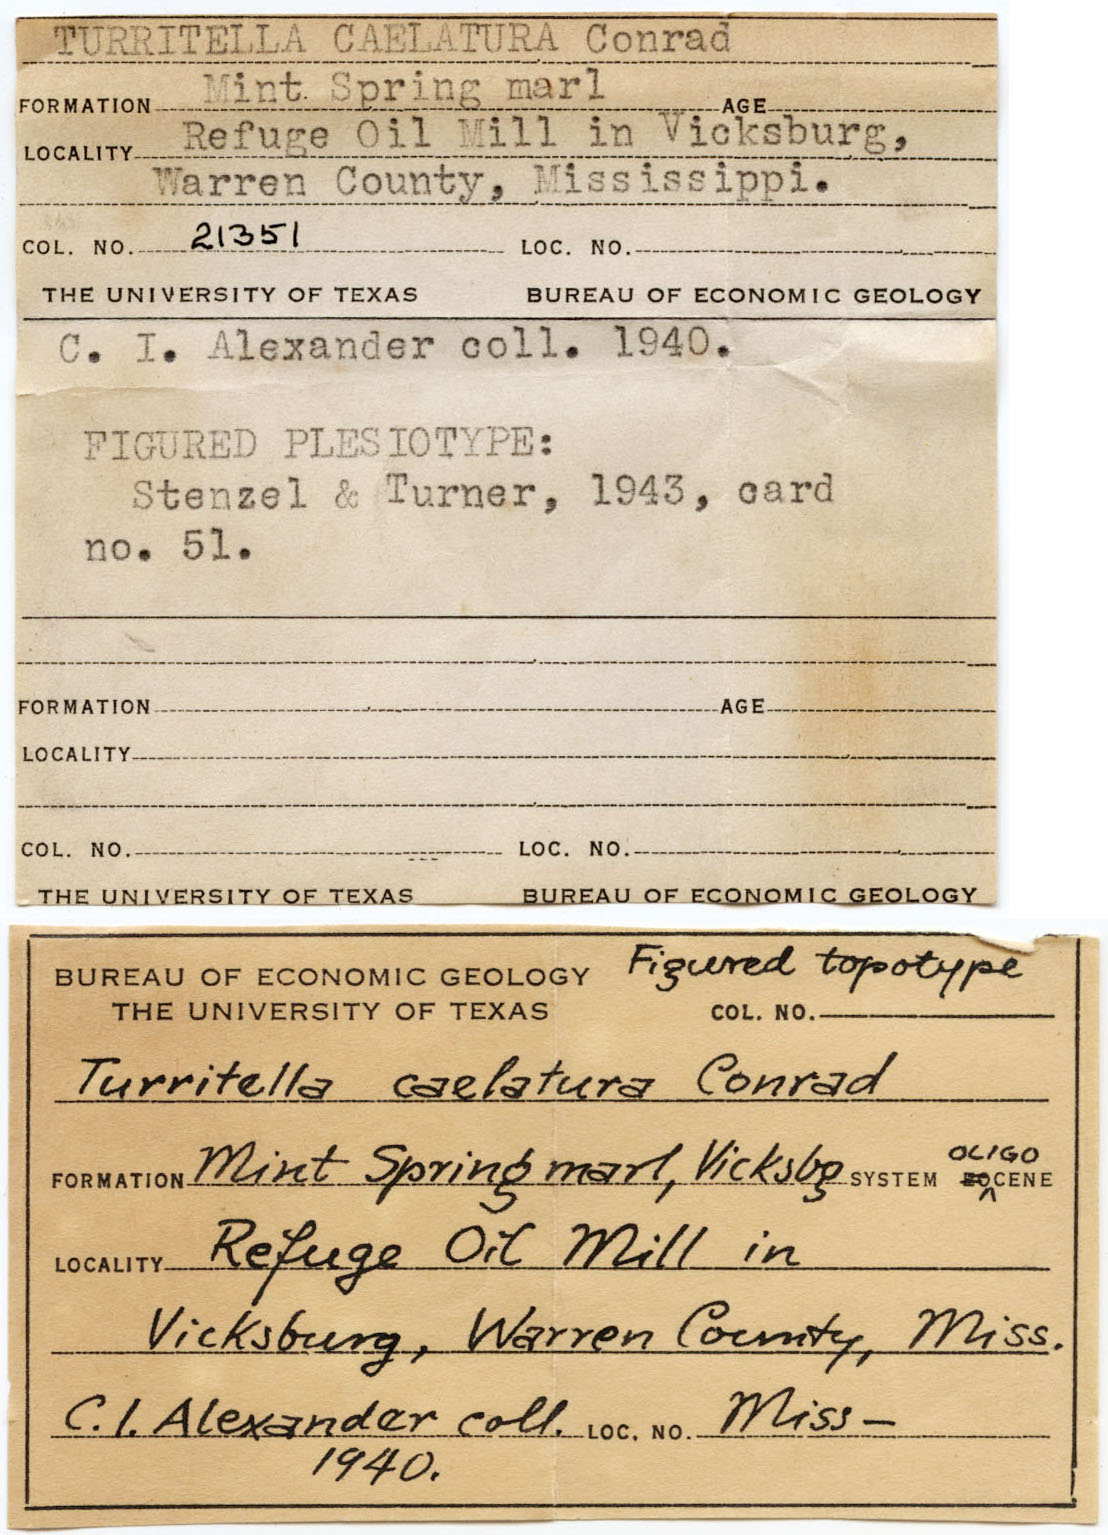 TURRITELLA CAELATURA Conrad
FORMATION Mint Spring marl AGE
LOCALITY Refuge Oil Mill in Vicksburg,
Warren County, Mississippi.
COL. NO. 21351 LOC. NO.
THE UNIVERSITY OF TEXAS BUREAU OF ECONOMIC GEOLOGY
C. I. Alexander coll. 1940.
FIGURED PLESIOTYPE:
Stenzel & Turner, 1943, card
no. 51.
FORMATION AGE
LOCALITY
COL. NO. LOC. NO.
THE UNIVERSITY OF TEXAS BUREAU OF ECONOMIC GEOLOGY
BUREAU OF ECONOMIC GEOLOGY Figured topotype
THE UNIVERSITY OF TEXAS COL. NO.
Turritella caelatura Conrad
FORMATION Mint Spring marl, Vicksbg SYSTEM OLIGOCENE
LOCALITY Refuge Oil Mill in
Vicksburg, Warren County, Miss.
C. I. Alexander coll. LOC. NO. Miss—
1940.